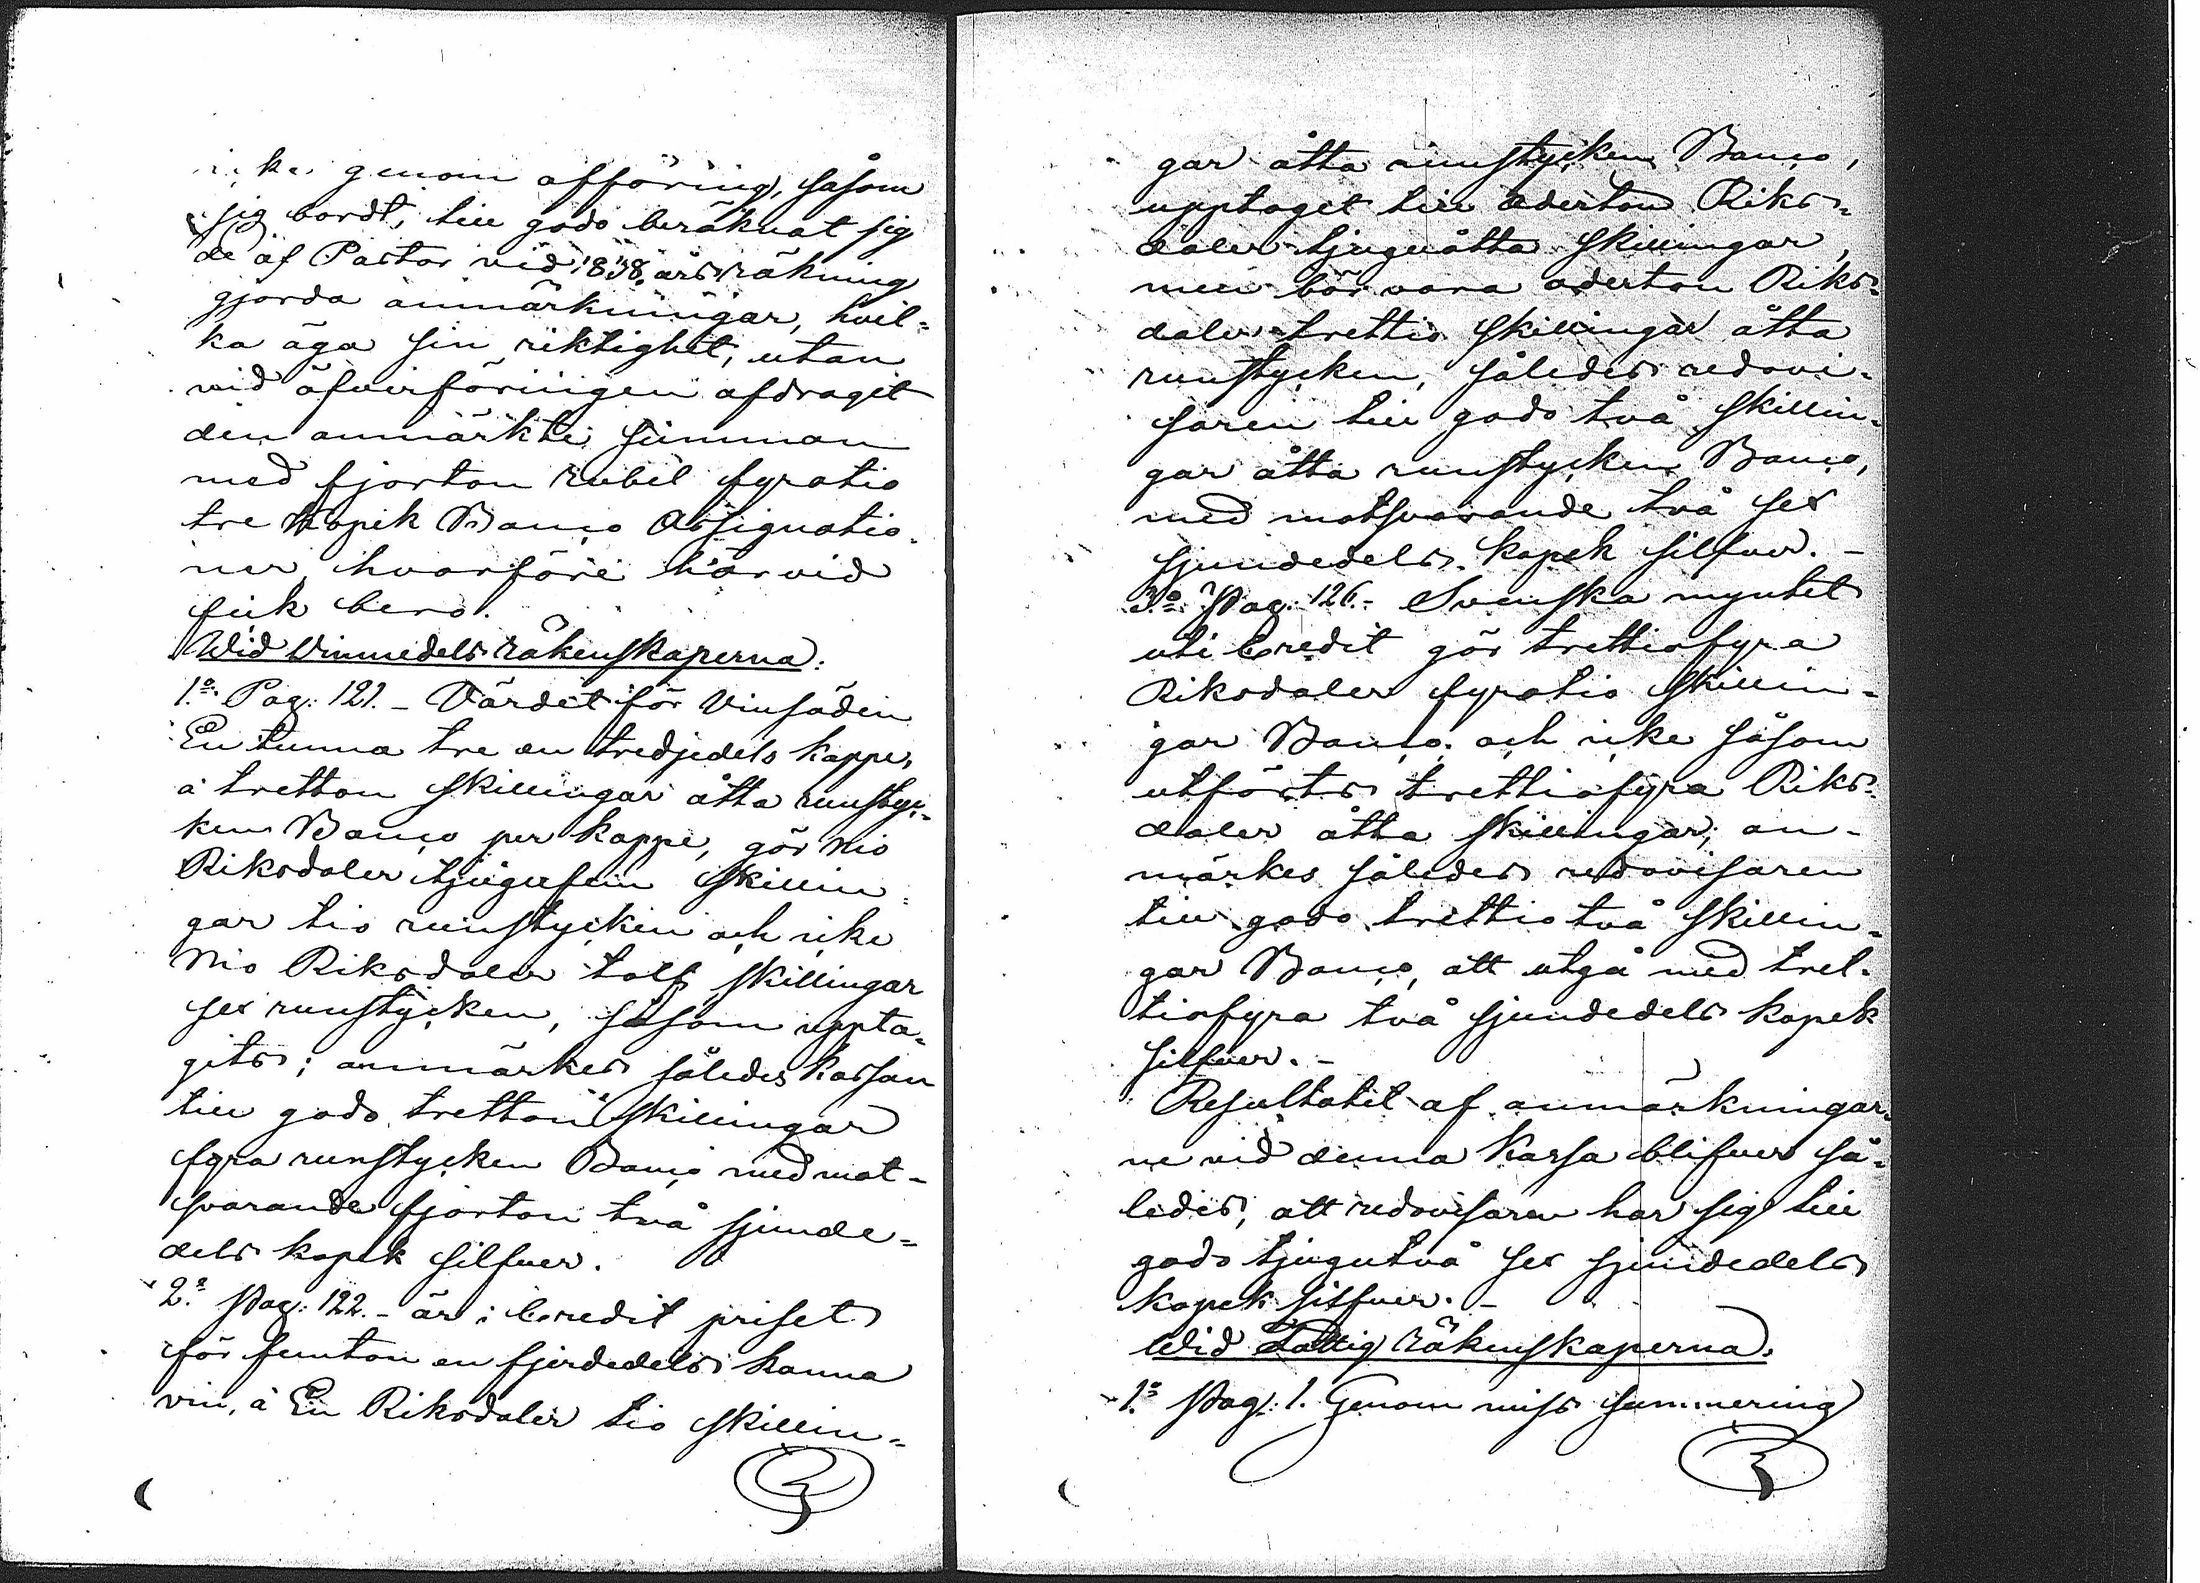 icke genom afföring, såsom
sig bordt, till godo beräknat sig
de af Pastor vid 1838 års räkning
gjorda anmärkningar, hvil=
ka äga sin riktighet, utan
vid öfverföringen afdragit
den anmärkte summan
med fjorton rubel fyratio
tre kopek Banco Assignatio
ner, hvarföre härvid
fick bero.
Wid Vinmedels räkenskaperna:
1:o Pag: 121. - Värdet för Vinsäden
En tunna tre en tredjedels kappe,
á tretton skillingar åtta runstyc=
ken Banco per kappe, gör nio
Riksdaler tjugufem skillin=
gar tio runstycken och icke
nio Riksdaler tolf skillingar
sex runstycken, såsom uppta=
gits; anmärkes således kassan
till godo tretton skillingar
fyra runstycken Banco med mot-
svarande fjorton två sjunde=
dels kopek silfver.
2:o Pag: 122. - är i Credit priset
för femton en fjerdedels kanna
vin, á En Riksdaler tio skillin=
gar åtta runstycken Banco,
upptaget till aderton Riks=
daler tjuguåtta skillingar,
men bör vara aderton Riks=
daler trettio skillingar åtta
runstycken, således redovi=
saren till godo två skillin=
gar åtta runstycken Banco,
med motsvarande två sex
sjundedels kopek silfver. -
3:o Pag: 126. - Svenska myntet
uti Credit gör trettiofyra
Riksdaler fyratio skillin=
gar Banco och icke såsom
utförts trettiofyra Riks=
daler åtta skillingar; an-
märkes således redovisaren
till godo trettio två skillin=
gar Banco, att utgå med tret=
tiofyra två sjundedels kopek
silfver. -
Resultatet af anmärkningar=
ne vid denna kassa blifver så=
ledes, att redovisaren har sig till
godo tjugutvå sex sjundedels
kopek silfver. -
Wid Fattig räkenskaperna.
1:o Pag: 1. Genom miss summering